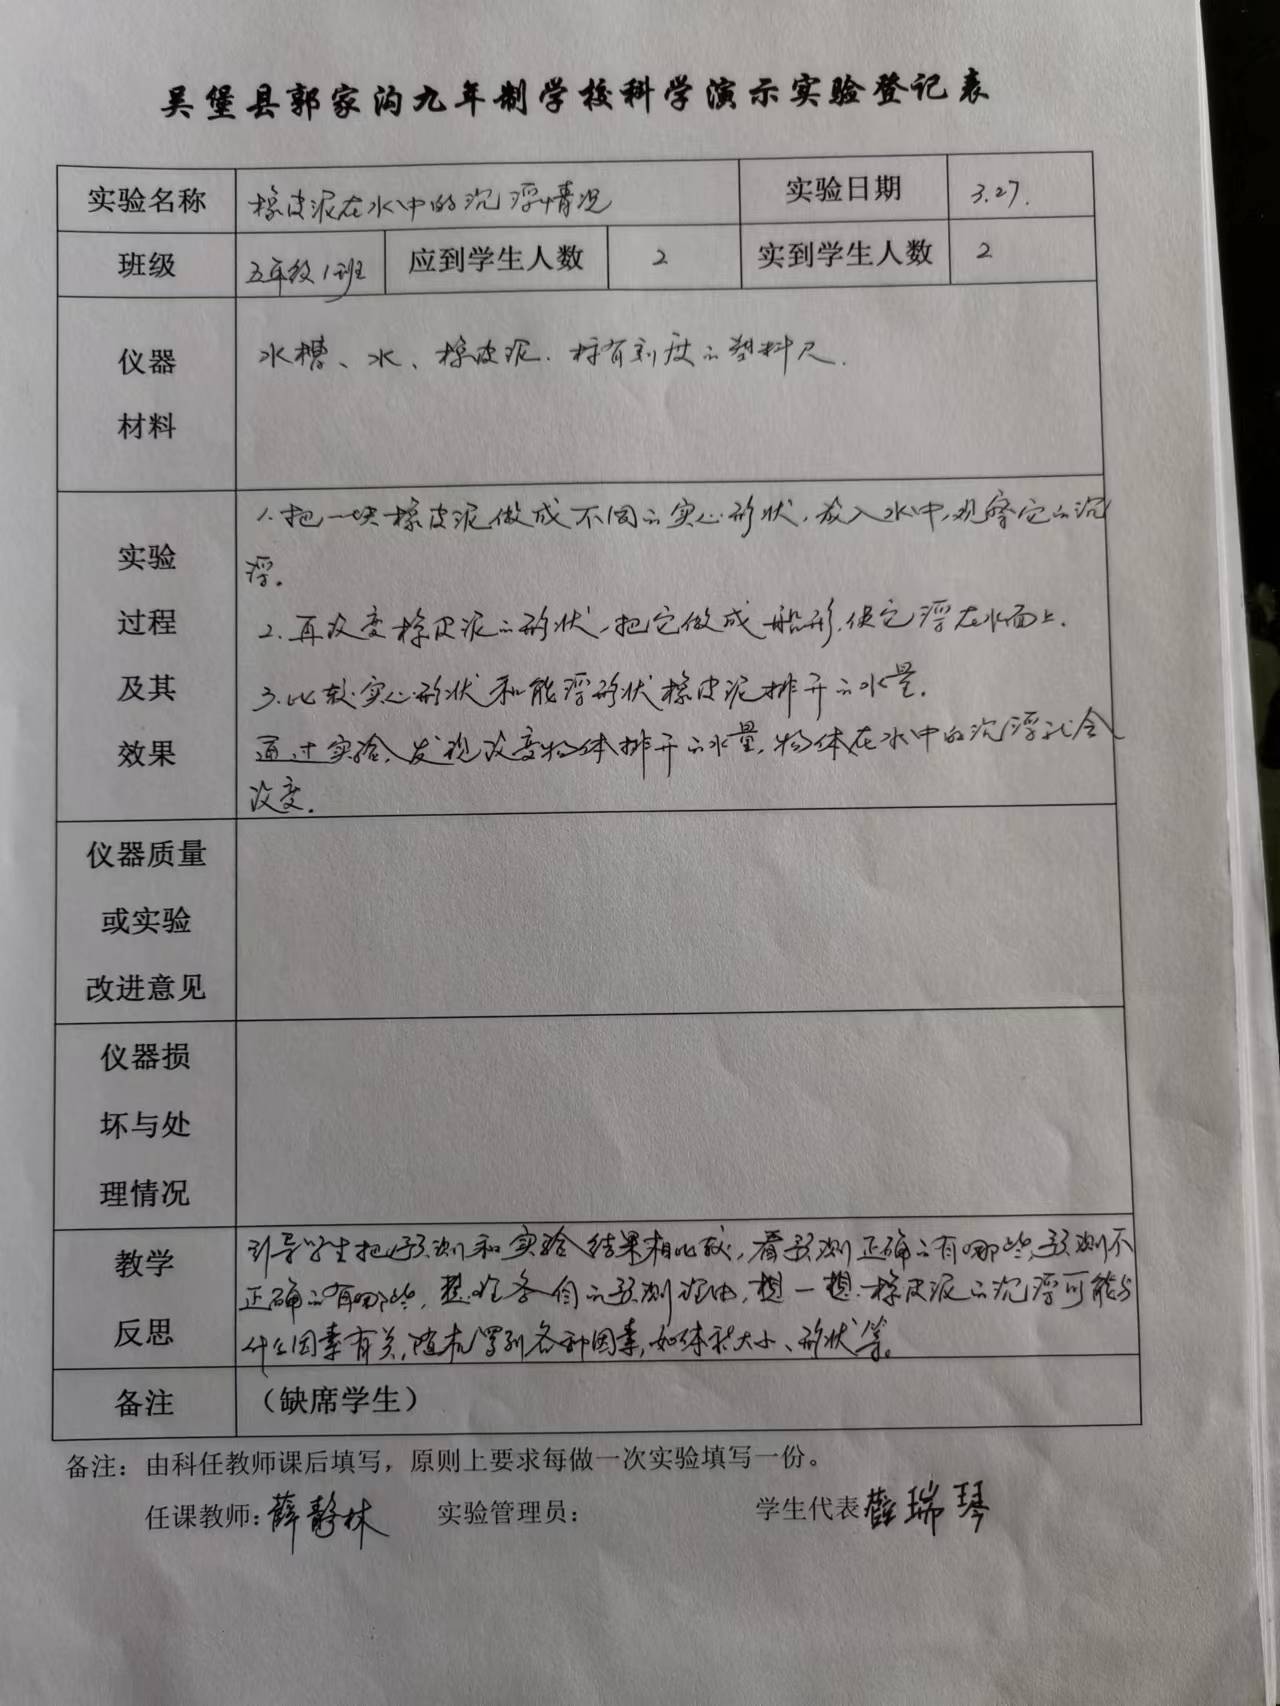 吴堡县郭家沟九年制学校科学演示实验登记表
实验名称 橡皮泥在水中的沉浮情况 实验日期 3.27.
班级 五年级1班 应到学生人数 2 实到学生人数 2
仪器 水槽、水、橡皮泥.标有刻度的塑料尺.
材料
1.把一块橡皮泥做成不同的实心形状,放入水中,观察它的沉
实验 浮.
过程 2.再改变橡皮泥的形状,把它做成船形,使它浮在水面上.
及其 3.比较实心形状和能浮形状橡皮泥排开的水量.
效果 通过实验,发现改变物体排开的水量,物体在水中的沉浮就会
改变.
仪器质量
或实验
改进意见
仪器损
坏与处
理情况
教学 引导学生把预测和实验结果相比较,看预测正确的有哪些,预测不
正确的有哪些,各自的预测理由,想一想.橡皮泥的沉浮可能与
反思 什么因素有关,随机写到各种因素,如体积大小、形状等。
备注 （缺席学生）
备注：由科任教师课后填写，原则上要求每做一次实验填写一份。
任课教师：薛静林 实验管理员： 学生代表 薛瑞琴